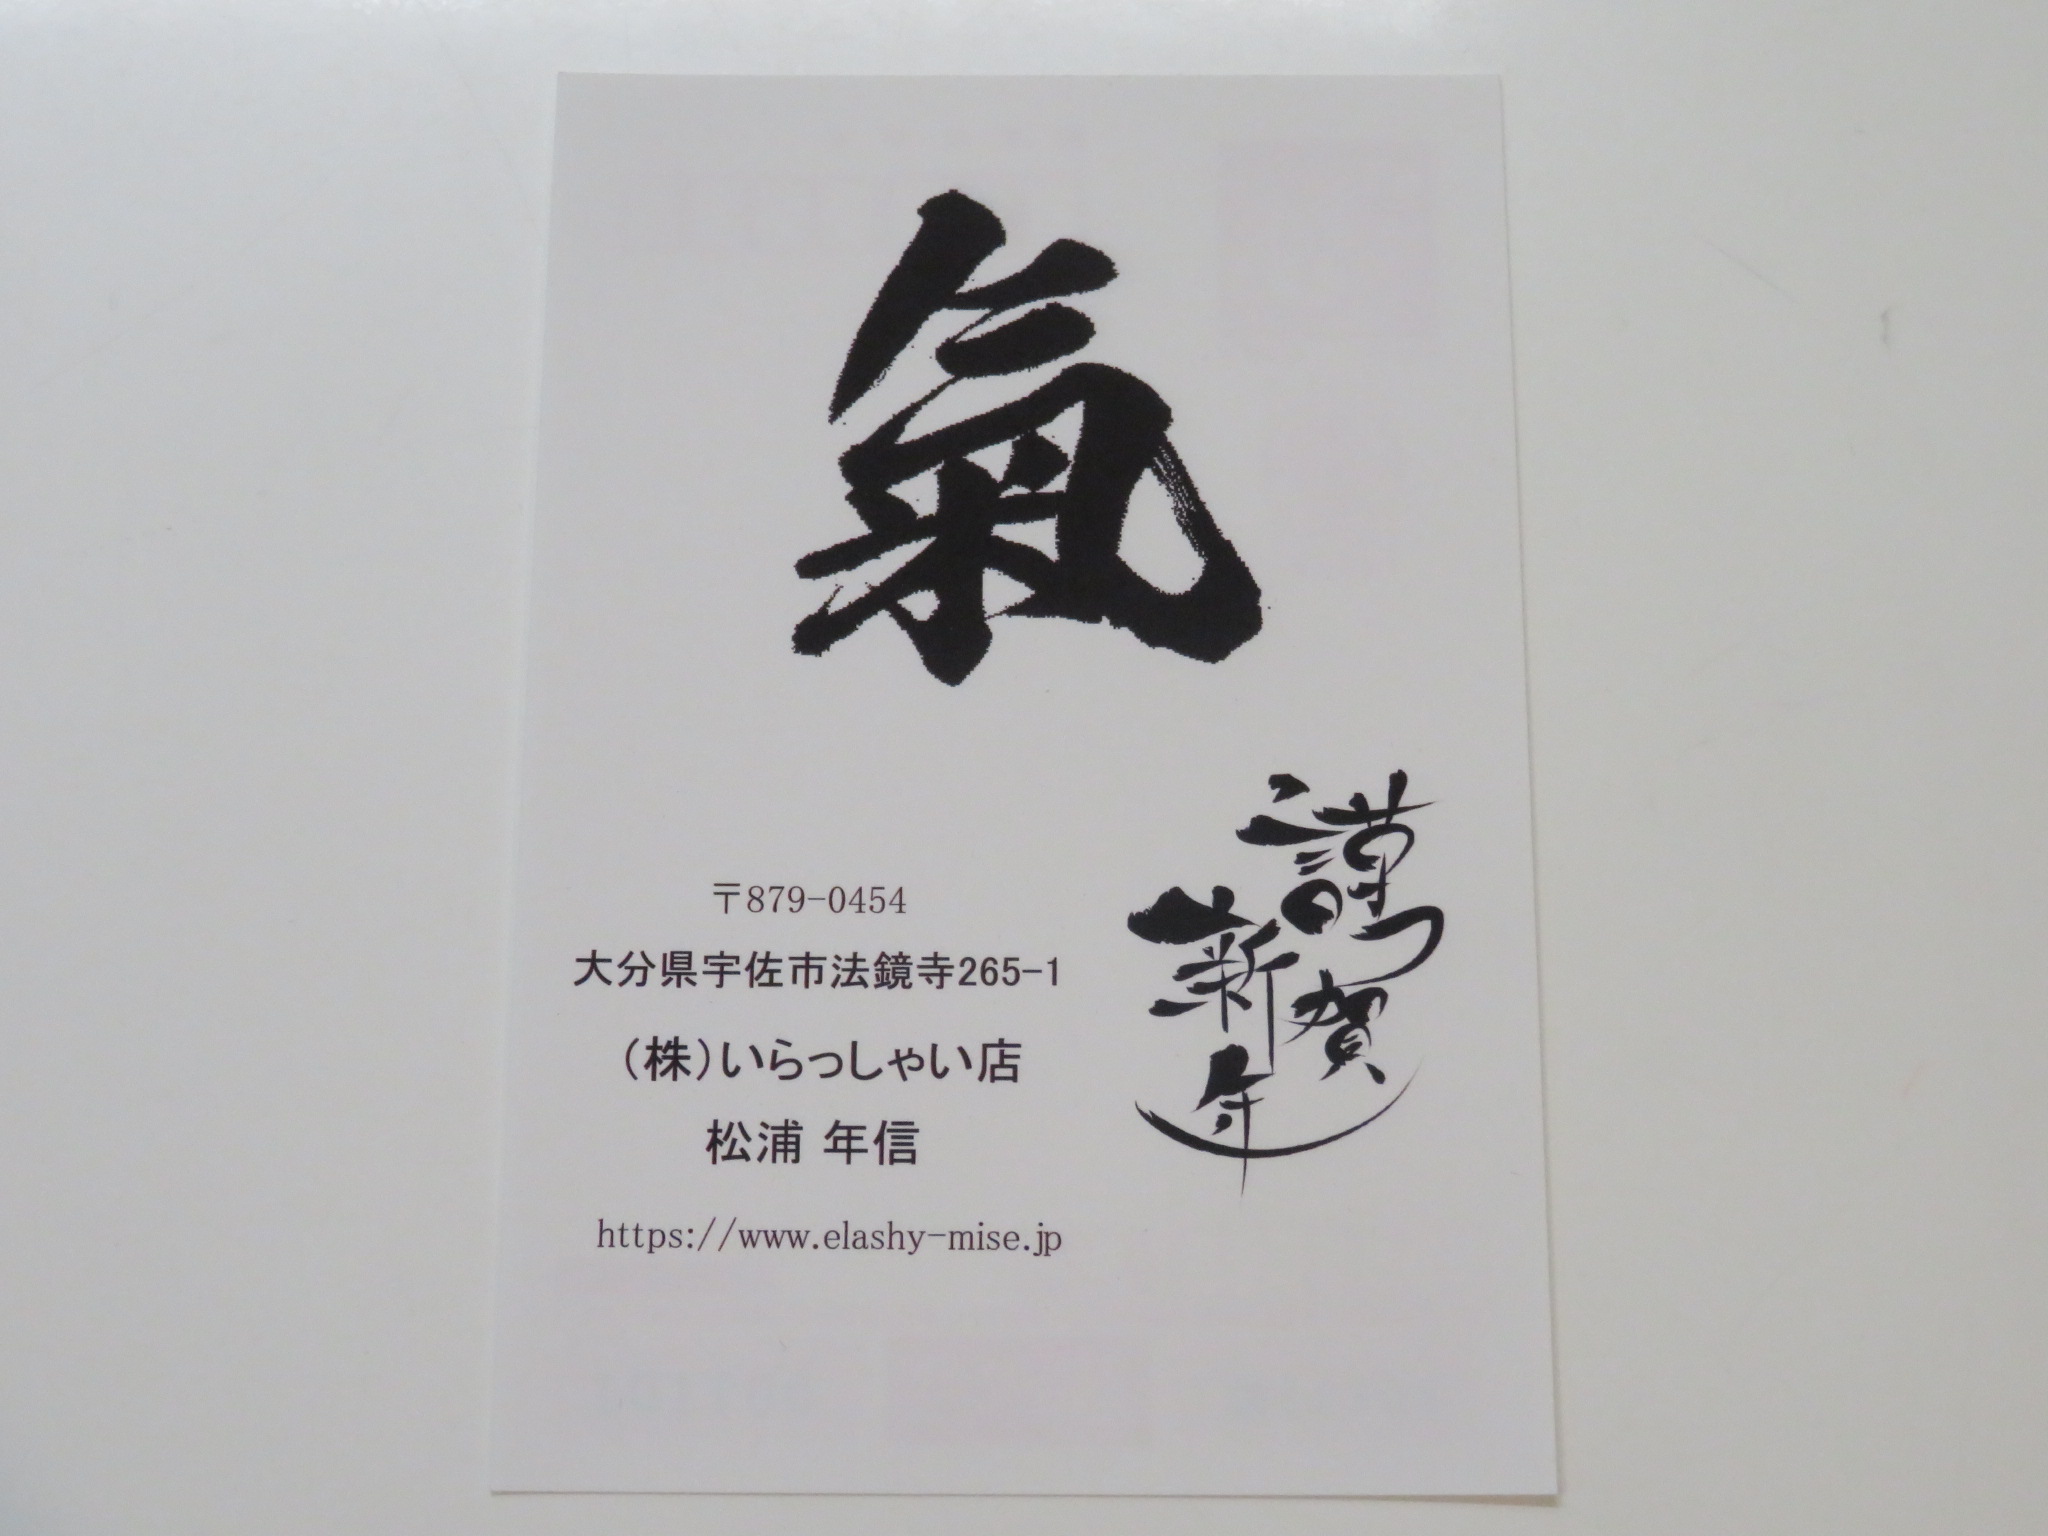 氣
謹賀
新年
〒879-0454
大分県宇佐市法鏡寺265-1
(株)いらっしゃい店
松浦 年信
https://www.elashy-mise.jp